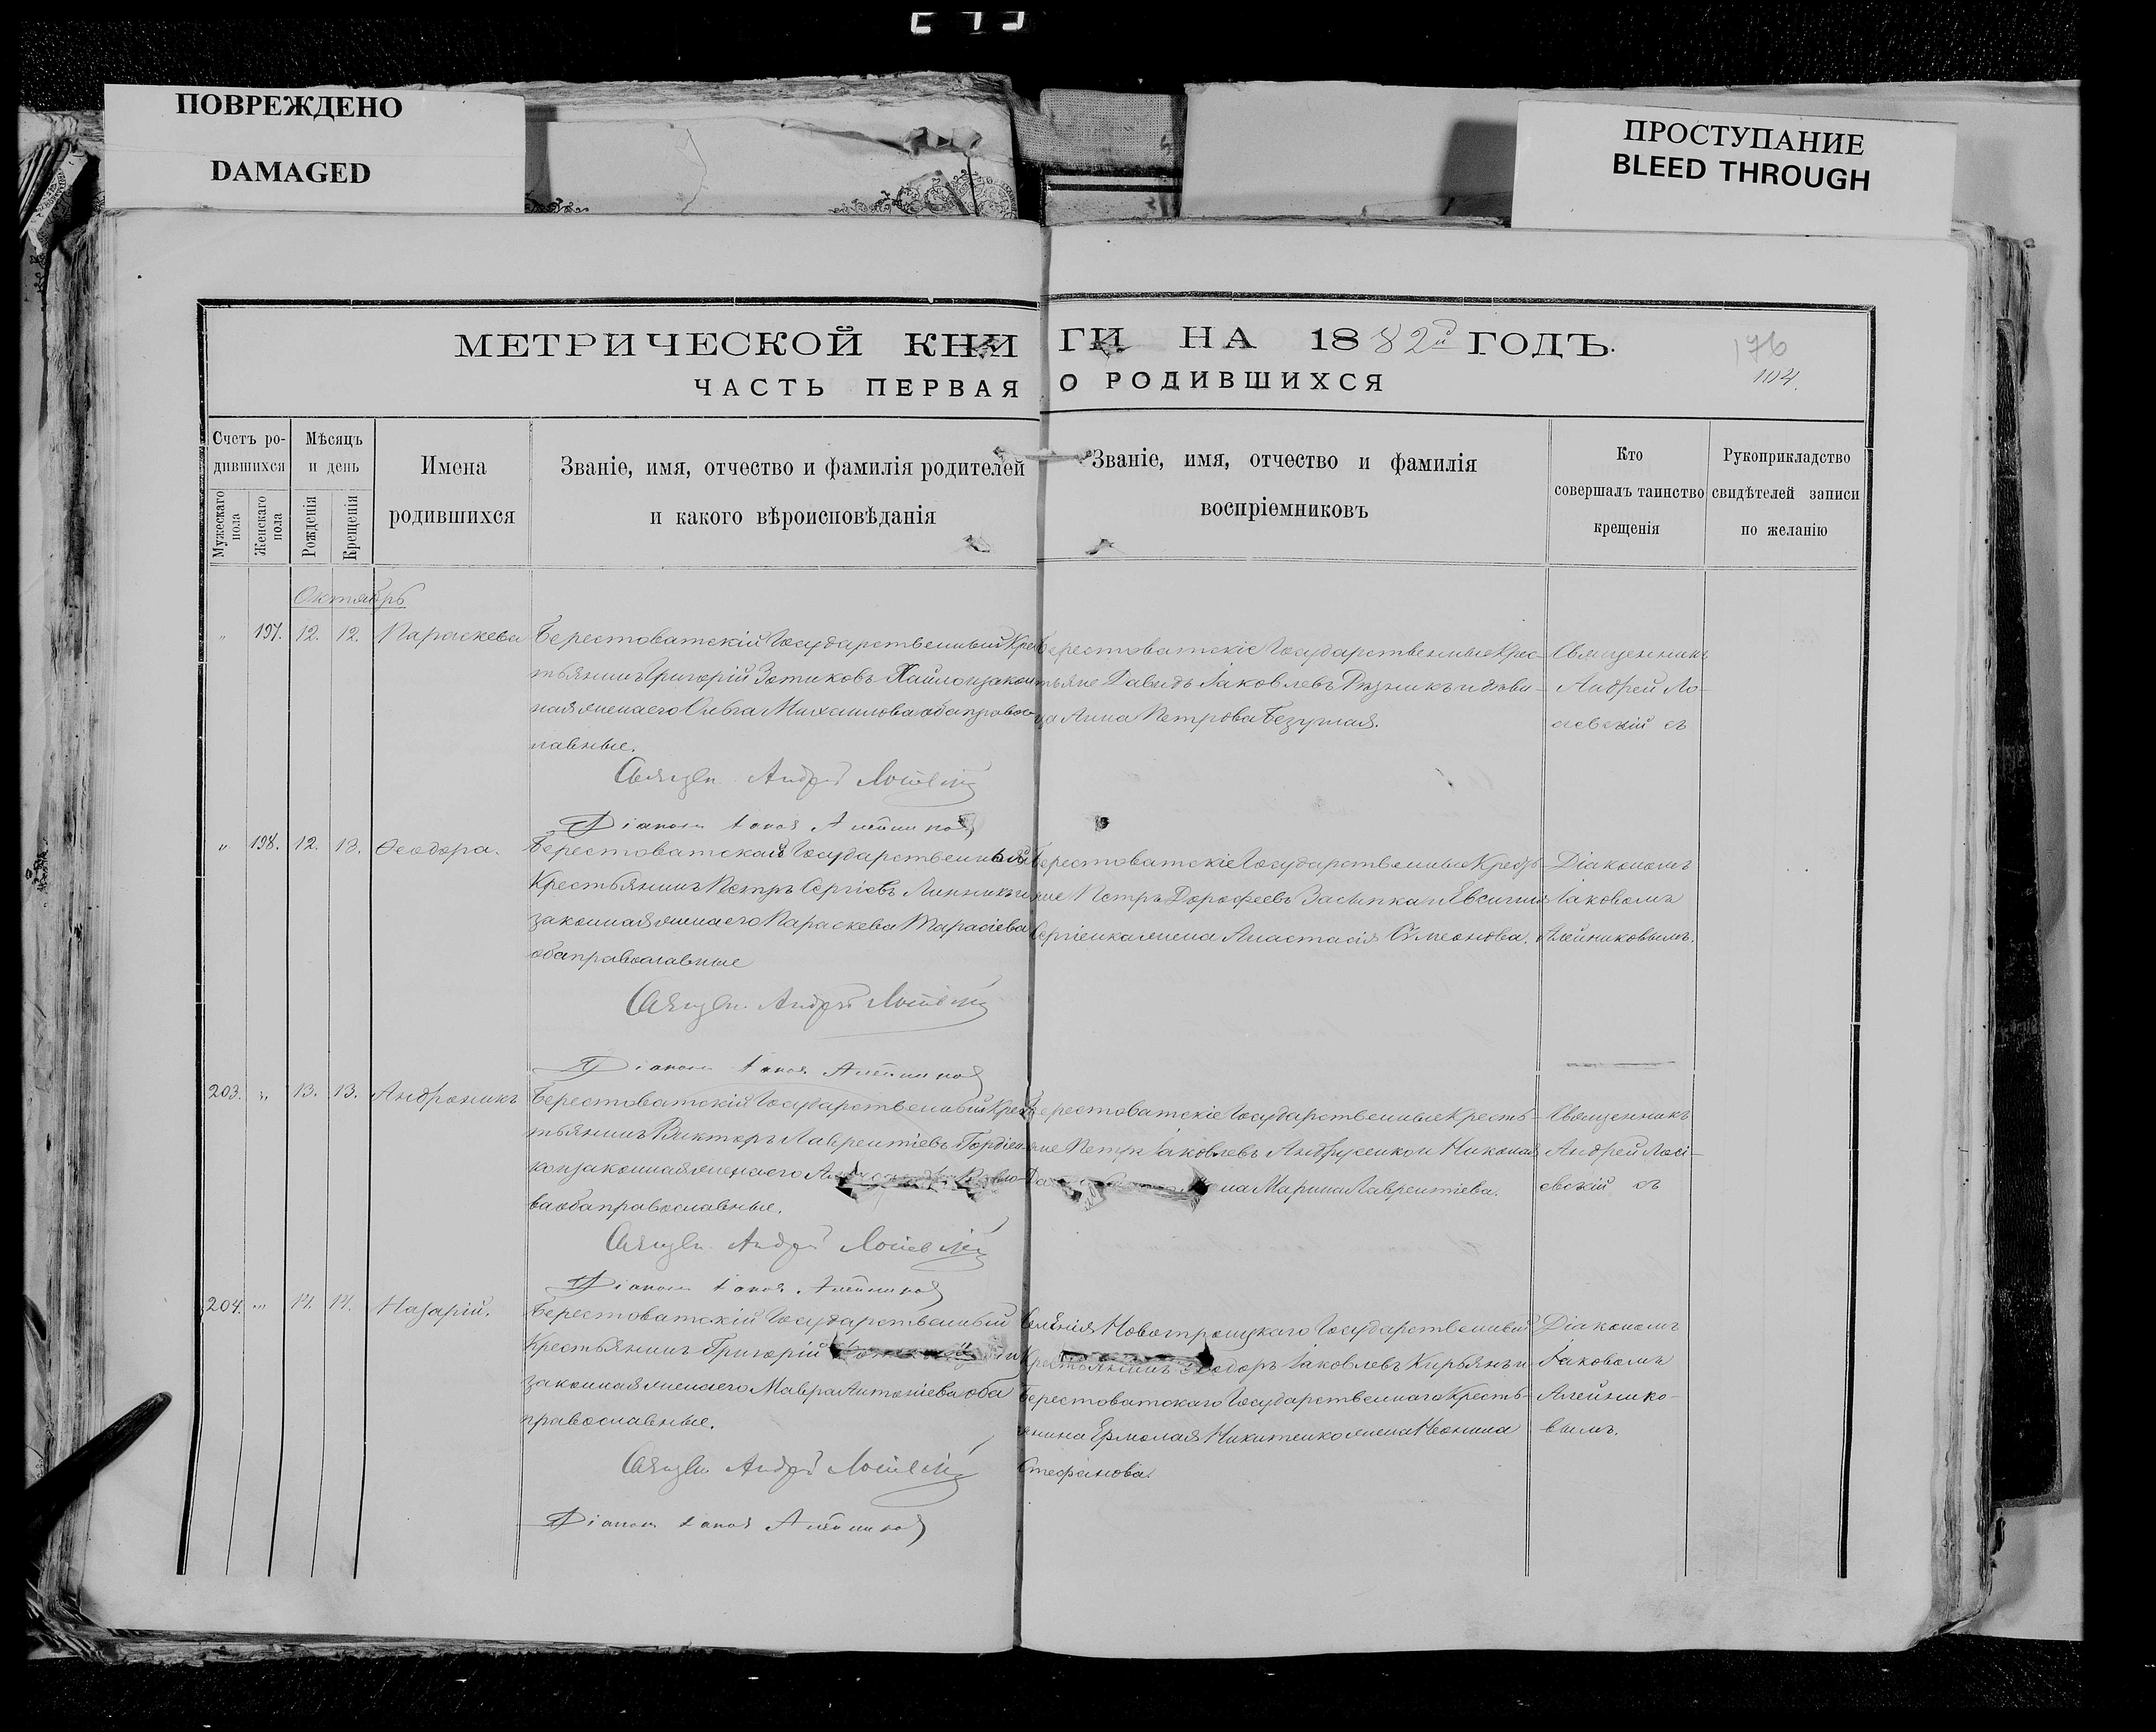 ПОВРЕЖДЕНО
DAMAGED
ПРОСТУПАНИЕ
BLEED THROUGH
МЕТРИЧЕСКОЙ КНИГИ НА 1882й ГОДЪ.
176
104.
ЧАСТЬ ПЕРВАЯ О РОДИВШИХСЯ
Счетъ ро-
дившихся
Мужескаго пола
Женскаго пола
Мѣсяцъ
и день
Рожденія
Крещенія
Имена
родившихся
Званіе, имя, отчество и фамилія родителей
и какого вѣроисповѣданія
Званіе, имя, отчество и фамилія
воспріемниковъ
Кто
совершалъ таинство
крещенія
Рукоприкладство
свидѣтелей записи
по желанію
Октябрь
" 197. 12. 12. Параскева
Берестоватскій Государственный Крес
тьянинъ Григорій Зотиковъ изакон
ная жена его Ольга Михаилова оба правос-
лавные.
Священ. Андрей Лосіевскій
Діаконъ Іаковъ Алейниковъ
Берестоватскіе Государственные Крес-
тьяне Давидъ Іаковлевъ Рѣзникъ и дѣви-
ца Анна Петрова Безуглая.
Священникъ
Андрей Ло-
сіевскій съ
" 198. 12. 13. Ѳеодора.
Берестоватскій Государственный
Крестьянинъ Петръ Сергіевъ Линникъ и
законная жена его Параскева Тарасіева
оба православные
Священ. Андрей Лосіевскій
Діаконъ Іаковъ Алейниковъ
Берестоватскіе Государственные Кресть-
яне Петръ Дорофеевъ и Евсигнія
Сергіенка жена Анастасія Сѵмеонова.
Діакономъ
Іаковомъ
Алейниковымъ.
203. " 13. 13. Андроникъ
Берестоватскій Государственный Крес
тьянинъ Викторъ Лаврентіевъ Гордіен-
ко и законная жена его
ва оба православные.
Священ. Андрей Лосіевскій
Діаконъ Іаковъ Алейниковъ
Берестоватскіе Государственные Кресть-
яне Петръ Іаковлевъ Андрусенко и Николая
на Марина Лаврентіева.
Священникъ
Андрей Лосі-
евскій съ
204. " 14. 14. Назарій.
Берестоватскій Государственный
Крестьянинъ Григорій и
законная жена его Мавра Антоніева оба
православные.
Священ. Андрей Лосіевскій
Діаконъ Іаковъ Алейниковъ
Селенія Новотроицкаго Государственный
Крестьянинъ Ѳеодоръ Іаковлевъ Кирьянъ и
Берестоватскаго Государственнаго Кресть-
янина Ермолая Никитенко жена Неонила
Стефанова.
Діакономъ
Іаковомъ
Алейнико-
вымъ.